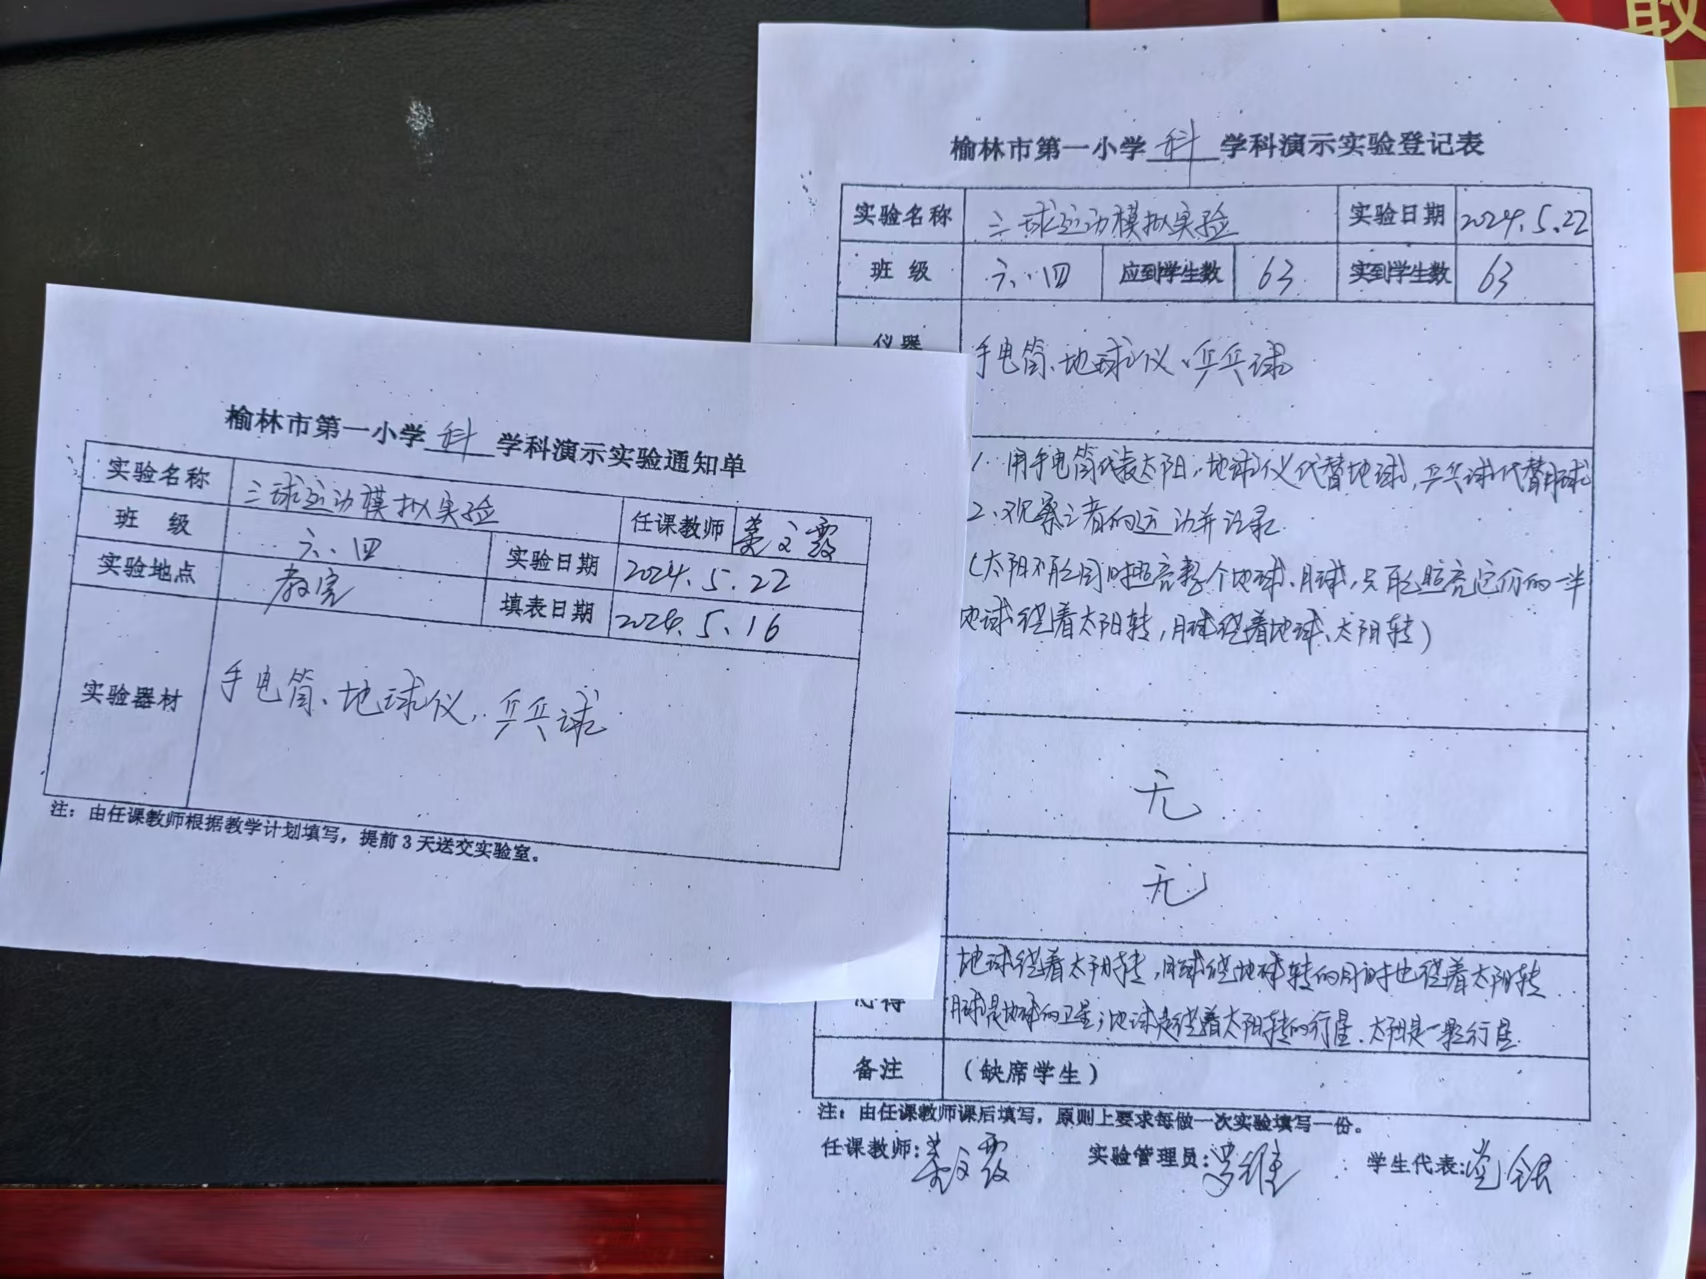 敢
榆林市第一小学科学科演示实验通知单
实验名称 三球运动模拟实验 任课教师
班 级 六.四 实验日期 2024.5.22
实验地点 教室 填表日期 2024.5.16
实验器材 手电筒、地球仪、乒乓球
注：由任课教师根据教学计划填写，提前3天送交实验室。
榆林市第一小学科学科演示实验登记表
实验名称 三球运动模拟实验 实验日期 2024.5.22
班 级 六.四 应到学生数 63 实到学生数 63
仪器 手电筒、地球仪、乒乓球
1. 用手电筒代表太阳，地球仪代替地球，乒乓球代替月球
2、观察三者的运动并记录
（太阳不能同时照亮整个地球、月球，只能照亮它们的一半
地球绕着太阳转，月球绕着地球、太阳转）
无
无
地球绕着太阳转，月球绕地球转的同时也绕着太阳转
心得 月球是地球的卫星；地球是绕着太阳转的行星、太阳是一颗行星
备注 （缺席学生）
注：由任课教师课后填写，原则上要求每做一次实验填写一份。
任课教师： 实验管理员： 学生代表：